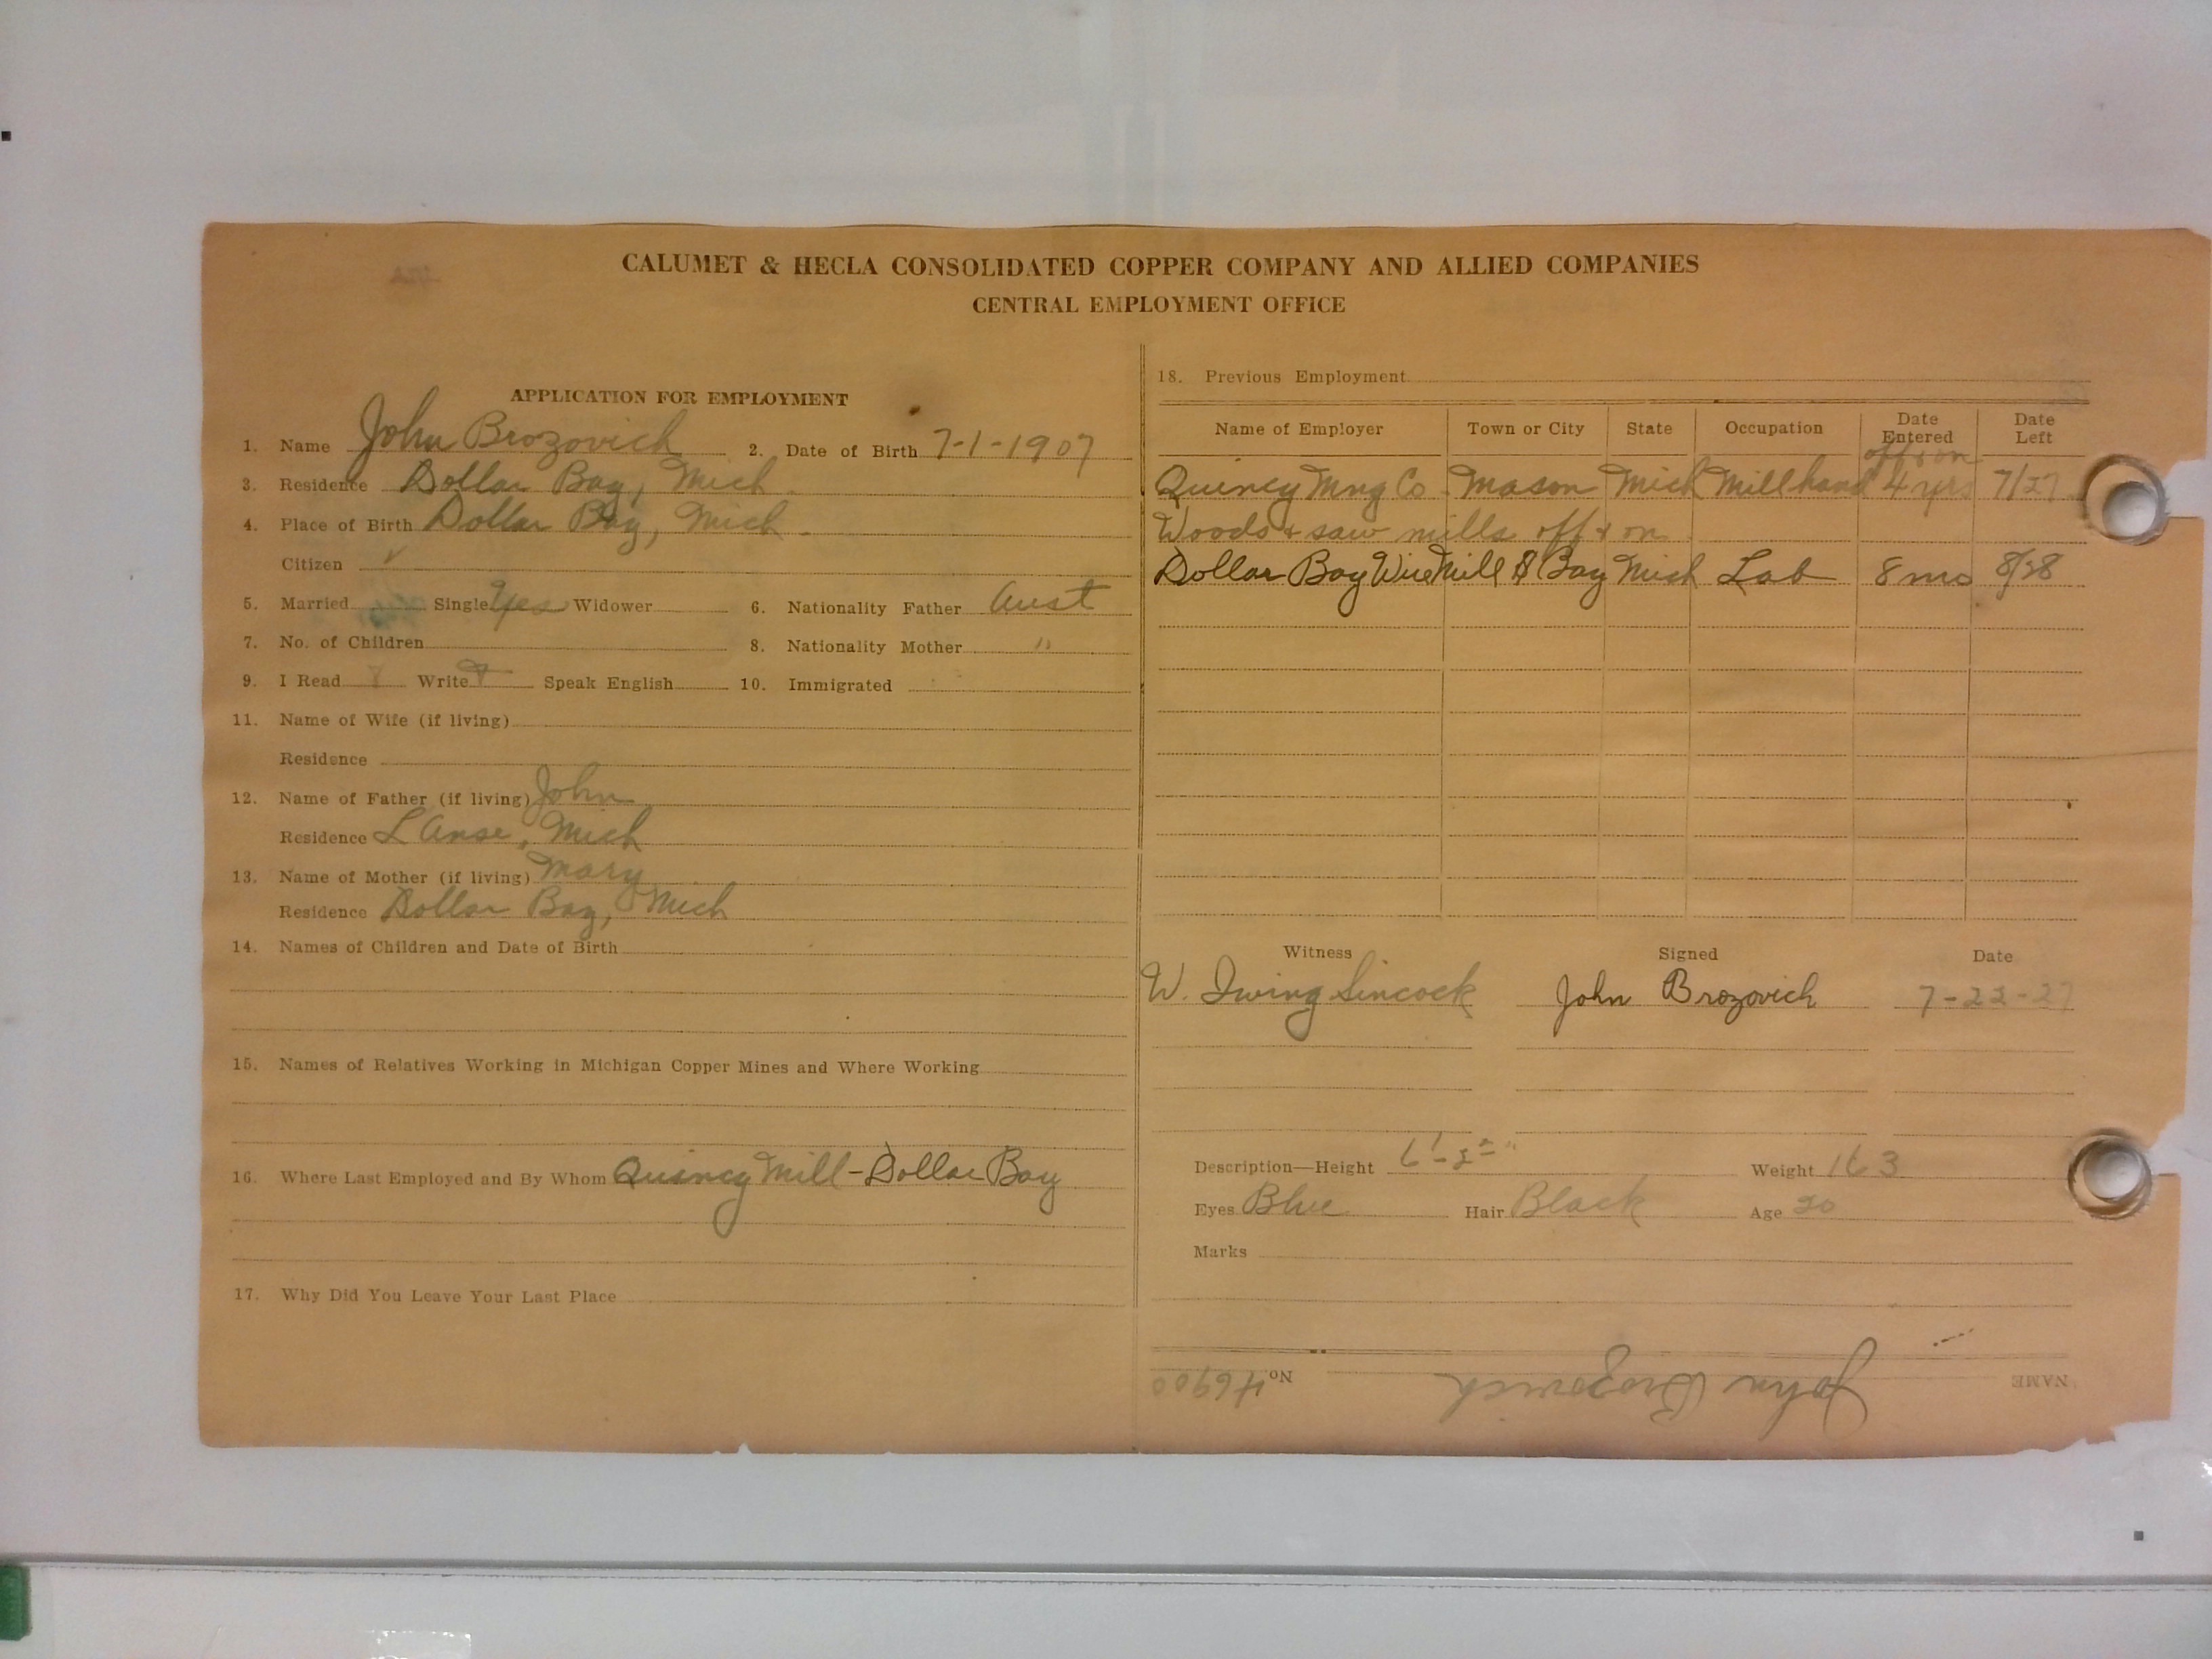 CALUMET & HECLA CONSOLIDATED COPPER COMPANY AND ALLIED COMPANIES
CENTRAL EMPLOYMENT OFFICE
APPLICATION FOR EMPLOYMENT
1. Name John Brozovich 2. Date of Birth 7-1-1907
3. Residence Dollar Bay, Mich.
4. Place of Birth Dollar Bay, Mich.
Citizen ✓
5. Married Single Yes Widower 6. Nationality Father Aust
7. No. of Children 8. Nationality Mother "
9. I Read Write Speak English 10. Immigrated
11. Name of Wife (if living)
Residence
12. Name of Father (if living) John
Residence L'Anse, Mich
13. Name of Mother (if living) Mary
Residence Dollar Bay, Mich
14. Names of Children and Date of Birth
15. Names of Relatives Working in Michigan Copper Mines and Where Working
16. Where Last Employed and By Whom Quincy Mill - Dollar Bay
17. Why Did You Leave Your Last Place
18. Previous Employment
Name of Employer Town or City State Occupation Date Entered Date Left
off & on
Quincy Mng Co. Mason Mich Millhand 4 yrs 7/27
Woods & saw mills off & on
Dollar Bay Wire Mill $ Bay Mich Lab 8 mo 8/28
Witness Signed Date
W. Irving Sincock John Brozovich 7-22-27
Description—Height 6'-2" Weight 163
Eyes Blue Hair Black Age 20
Marks
NAME John Brozovich No. 46900